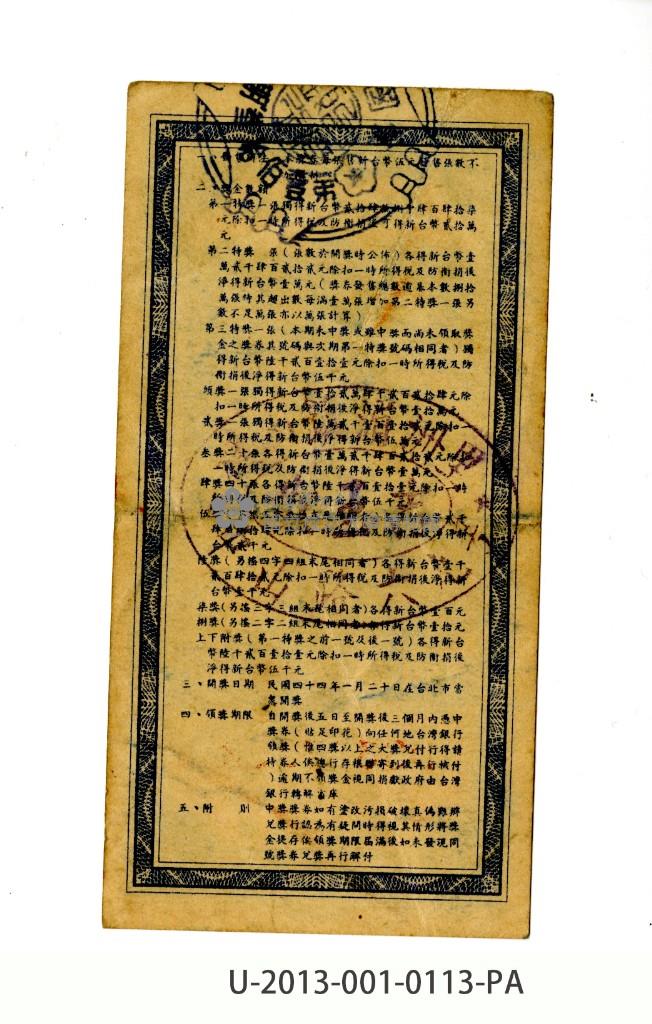 二、獎金數額
第一特獎一張獨得新台幣貳拾肆萬捌千肆百肆拾柒
元除扣一時所得稅及防衛捐淨可得新台幣貳拾萬
元
第二特獎 張(張數於開獎時公佈)各得新台幣壹
萬貳千肆百貳拾貳元除扣一時所得稅及防衛捐後
淨得新台幣壹萬元(獎券發售總數逾基本數捌拾
萬張時其超出數每滿壹萬張增加第二特獎一張另
數不足萬張亦以萬張計算)
第三特獎一張(本期未中獎或雖中獎而尚未領取獎
金之獎券其號碼與次期第一特獎號碼相同者)獨
得新台幣陸千貳百壹拾壹元除扣一時所得稅及防
衛捐後淨得新台幣伍千元
頭獎一張獨得新台幣壹拾貳萬肆千貳百貳拾肆元除
扣一時所得稅及防衛捐後淨得新台幣壹拾萬元
貳獎一張獨得新台幣陸萬貳千壹百壹拾貳元除扣一
時所得稅及防衛捐後淨得新台幣伍萬元
叁獎二十張各得新台幣壹萬貳千肆百貳拾貳元除扣
一時所得稅及防衛捐後淨得新台幣壹萬元
肆獎四十張各得新台幣陸千貳百壹拾壹元除扣一時
所得稅及防衛捐後淨得新台幣伍千元
陸獎(另搖四字四組末尾相同者)各得新台幣壹千
貳百肆拾貳元除扣一時所得稅及防衛捐後淨得新
台幣壹千元
柒獎(另搖三字三組末尾相同者)各得新台幣壹百元
捌獎(另搖二字二組末尾相同者)各得新台幣壹拾元
上下附獎(第一特獎之前一號及後一號)各得新台
幣陸千貳百壹拾壹元除扣一時所得稅及防衛捐後
淨得新台幣伍千元
三、開獎日期 民國四十四年一月二十日在台北市當
眾開獎
四、領獎期限 自開獎後五日至開獎後三個月內憑中
獎券(貼足印花)向任何地台灣銀行
領獎(惟四獎以上之大獎兌付行得請
持券人俟總行存根聯寄到後再行核付
)逾期不領獎金視同捐獻政府由台灣
銀行轉解省庫
五、附 則 中獎獎券如有塗改污損破壞真偽難辨
兌獎行認為有疑問時得視其情形將獎
金提存俟領獎期限屆滿後如未發現同
號獎券兌獎再行解付
U-2013-001-0113-PA